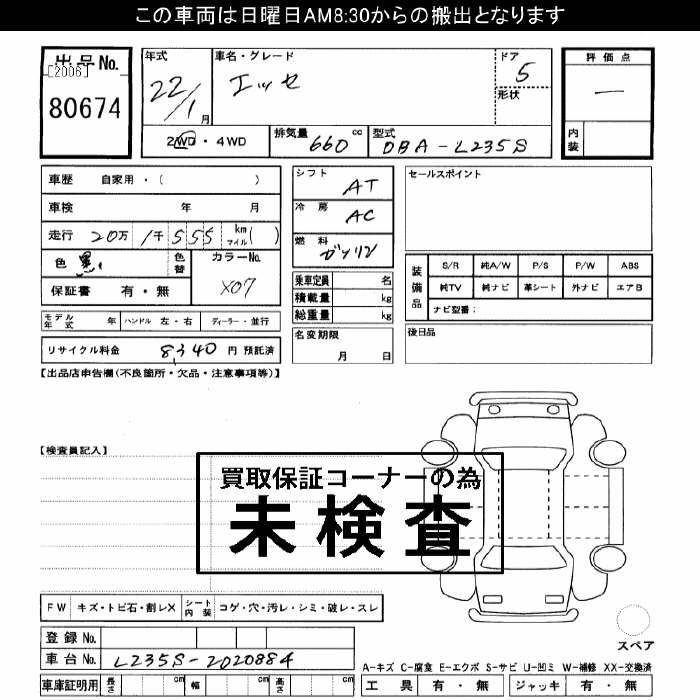 この車両は日曜日AM8:30からの搬出となります
出品No.
[2006]
80674
年式
22/1月
車名・グレード
エッセ
ドア
5
形状
評価点
—
内装
2WD・4WD
排気量 660 cc
型式 DBA-L235S
車歴 自家用・( )
車検 年 月
走行 20万 1千 555 km マイル( )
色 黒 色替
カラーNo.
X07
保証書 有・無
シフト AT
冷房 AC
燃料 ガソリン
乗車定員 名
積載量 kg
総重量 kg
セールスポイント
装備品
S/R 純A/W P/S P/W ABS
純TV 純ナビ 革シート 外ナビ エアB
ナビ型番:
モデル年式 年 ハンドル 左・右 ディーラー・並行
名変期限
月 日
後日品
リサイクル料金 8,340 円 預託済
【出品店申告欄(不良箇所・欠品・注意事項等)】
【検査員記入】
買取保証コーナーの為
未検査
FW キズ・トビ石・割レX シート内装 コゲ・穴・汚レ・シミ・破レ・スレ
登録No.
車台No. L235S-2020884
スペア
A-キズ C-腐食 E-エクボ S-サビ U-凹ミ W-補修 XX-交換済
車庫証明用 長さ cm 幅 cm 高さ cm
工具 有・無 ジャッキ 有・無